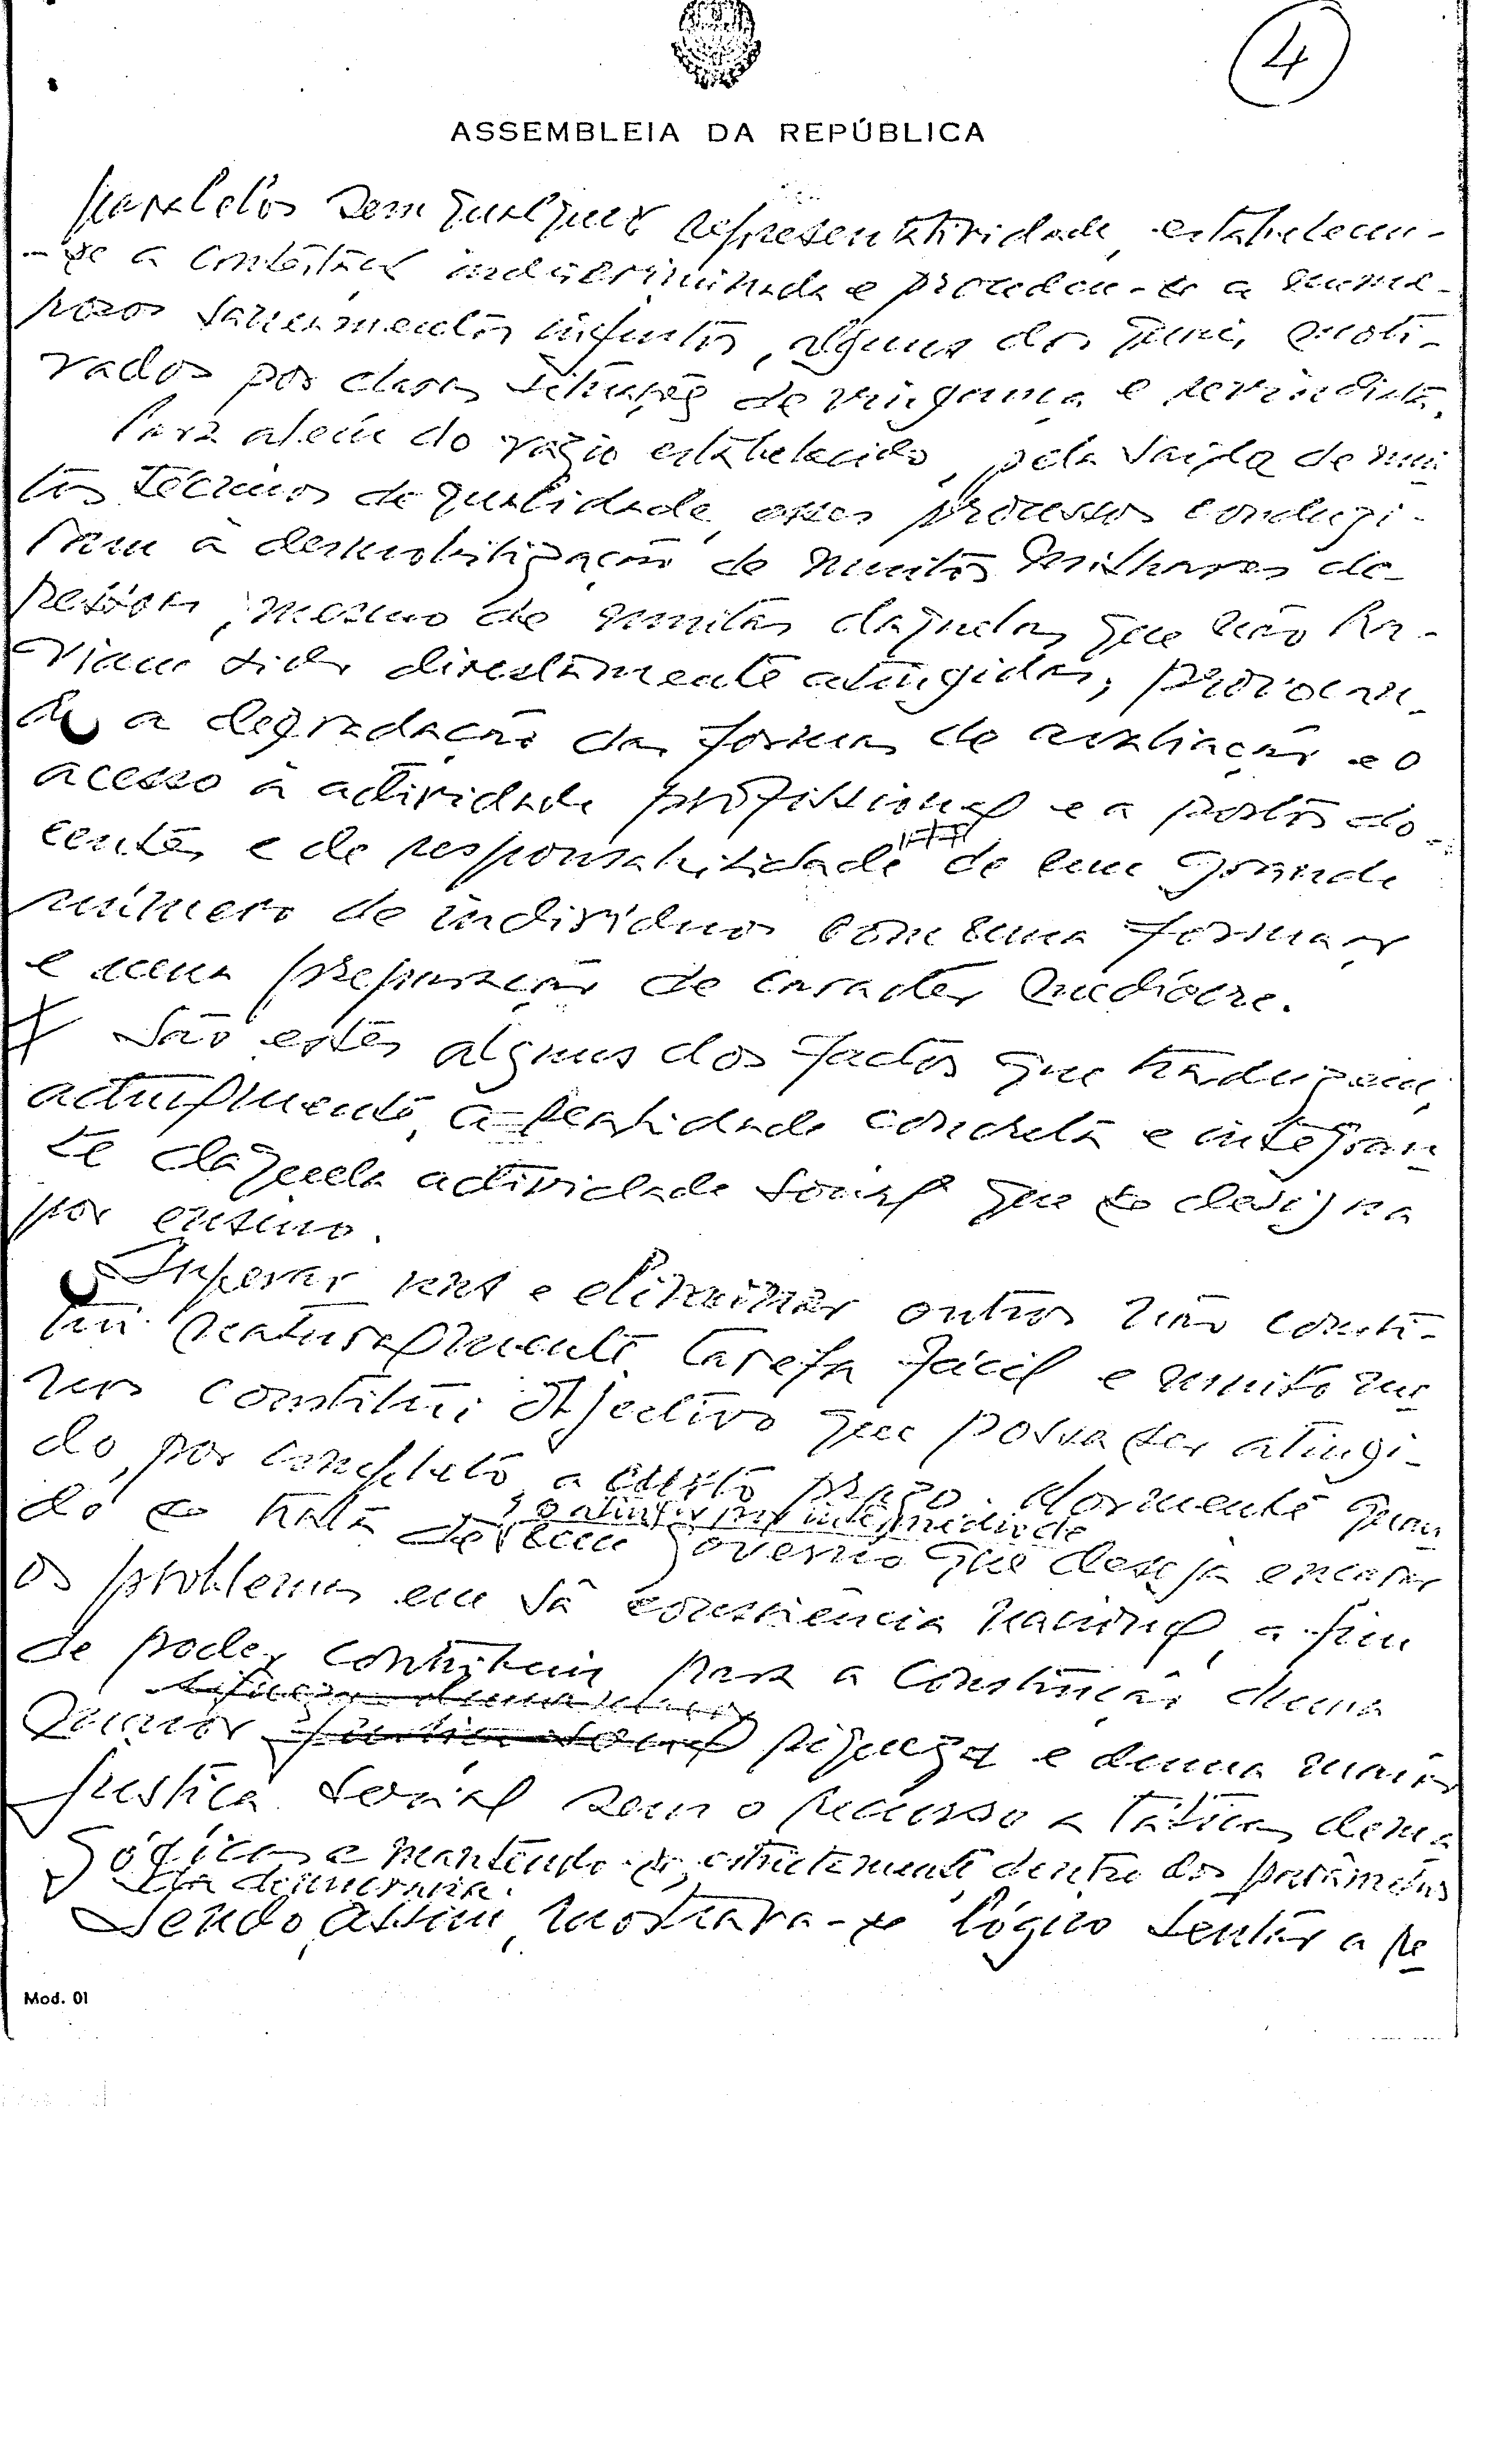 4
ASSEMBLEIA DA REPÚBLICA
paralelos sem qualquer representatividade, estabeleceu-
-se a contestação indiscriminada e procedeu-se a nume-
rosos saneamentos injustos, alguns dos quais moti-
vados por claras situações de vingança e revindicta.
Para além do vazio estabelecido, pela saída de mui
tos técnicos de qualidade, esses processos conduzi-
ram à desmobilização de muitos milhares de
pessoas, mesmo de muitas daquelas que não ha-
viam sido directamente atingidas, provocan-
do a degradação das formas de avaliação e o
acesso à actividade profissional e a postos do-
centes e de responsabilidade de um grande
número de indivíduos com uma formação
e uma preparação de carácter medíocre.
São estes alguns dos factos que traduzem,
actualmente, a realidade concreta e integran
te daquela actividade social que se designa
por ensino.
Superar uns e eliminar outros não consti-
tui naturalmente tarefa fácil e muito me
nos constitui objectivo que possa ser atingi-
do, por completo, a curto prazo. Mormente quan
do se trata de o atingir por intermédio de
um governo que deseja encarar
os problemas em sã consciência nacional, a fim
de poder contribuir para a construção duma
maior riqueza e duma maior
justiça social sem o recurso a táticas dema
gógicas e mantendo-se estritamente dentro dos parâmetros
da democracia.
Sendo assim, mostrava-se lógico tentar a re
Mod. 01